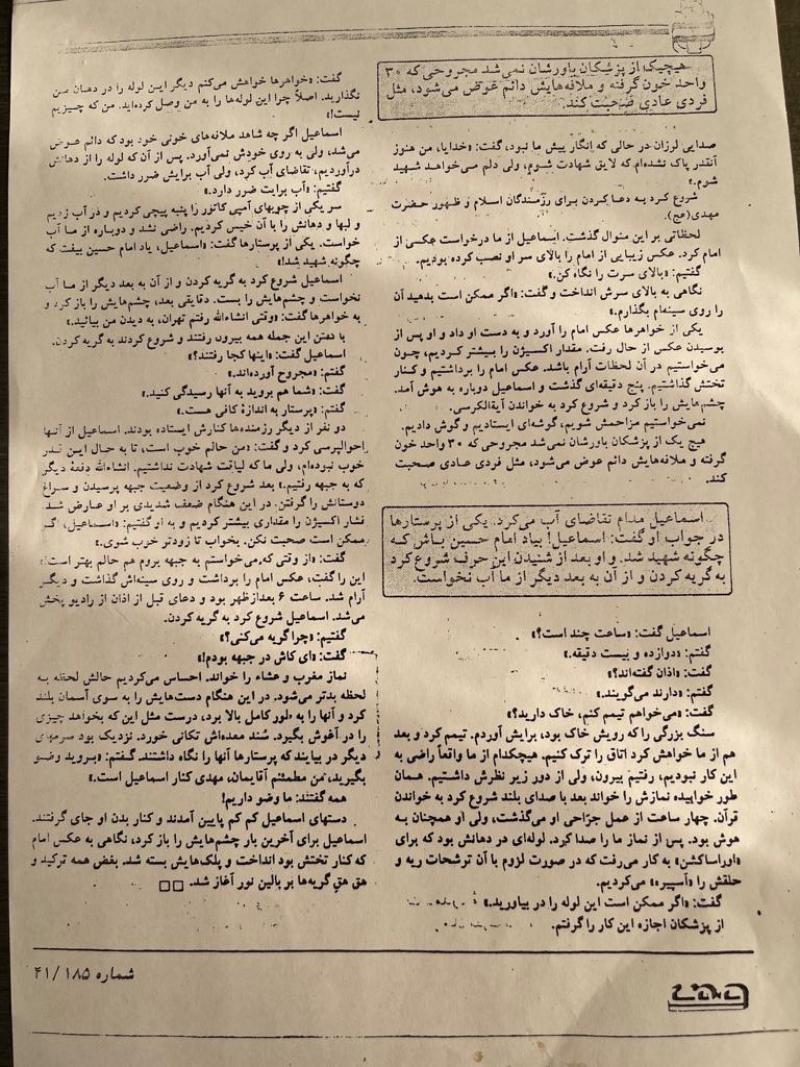 هیچیک از پزشکان باورشان نمی‌شد مجروحی که ۳۰
واحد خون گرفته و ملافه‌هایش دائم عوض می‌شود، مثل
فردی عادی صحبت کند.
صدایی لرزان در حالی که انگار پیش ما نبود، گفت: «خدایا، من هنوز
آنقدر پاک نشده‌ام که لایق شهادت شوم، ولی دلم می‌خواهد شهید
شوم.»
شروع کرد به دعا کردن برای رزمندگان اسلام و ظهور حضرت
مهدی(عج).
لحظاتی بر این منوال گذشت. اسماعیل از ما درخواست عکسی از
امام کرد. عکس زیبایی از امام را بالای سر او نصب کرده بودیم.
گفتیم: «بالای سرت را نگاه کن.»
نگاهی به بالای سرش انداخت و گفت: «اگر ممکن است بدهید آن
را روی سینه‌ام بگذارم.»
یکی از خواهرها عکس امام را آورد و به دست او داد و او پس از
بوسیدن عکس از حال رفت. مقدار اکسیژن را بیشتر کردیم، چون
می‌خواستیم در آن لحظات آرام باشد. عکس امام را برداشتیم و کنار
تختش گذاشتیم. پنج دقیقه‌ای گذشت و اسماعیل دوباره به هوش آمد.
چشم‌هایش را باز کرد و شروع کرد به خواندن آیةالکرسی.
نمی‌خواستیم مزاحمش شویم، گوشه‌ای ایستادیم و گوش دادیم.
هیچ یک از پزشکان باورشان نمی‌شد مجروحی که ۳۰ واحد خون
گرفته و ملافه‌هایش دائم عوض می‌شود، مثل فردی عادی صحبت
کند.
اسماعیل مدام تقاضای آب می‌کرد. یکی از پرستارها
در جواب او گفت: اسماعیل! بیاد امام حسین باش که
چگونه شهید شد. و او بعد از شنیدن این حرف شروع کرد
به گریه کردن و از آن به بعد دیگر از ما آب نخواست.
اسماعیل گفت: «ساعت چند است؟»
گفتم: «دوازده و بیست دقیقه.»
گفت: «اذان گفته‌اند؟»
گفتم: «دارند می‌گویند.»
گفت: «می‌خواهم تیمم کنم، خاک دارید؟»
سنگ بزرگی را که رویش خاک بود، برایش آوردم. تیمم کرد و بعد
هم از ما خواهش کرد اتاق را ترک کنیم. هیچکدام از ما واقعاً راضی به
این کار نبودیم، رفتیم بیرون، ولی از دور زیر نظرش داشتیم. همان
طور خوابیده نمازش را خواند بعد با صدای بلند شروع کرد به خواندن
قرآن. چهار ساعت از عمل جرّاحی او می‌گذشت، ولی او همچنان به
هوش بود. پس از نماز ما را صدا کرد. لوله‌ای در دهانش بود که برای
«اوراساکشن» به کار می‌رفت که در صورت لزوم با آن ترشحات ریه و
حلقش را «آسپیره» می‌کردیم.
گفت: «اگر ممکن است این لوله را در بیاورید.»
از پزشکان اجازه این کار را گرفتم.
گفت: «خواهرها خواهش می‌کنم دیگر این لوله را در دهان من
نگذارید. اصلاً چرا این لوله‌ها را به من وصل کرده‌اید. من که چیزیم
نیست!»
اسماعیل اگر چه شاهد ملافه‌های خونی خود بود که دائم عوض
می‌شد، ولی به روی خودش نمی‌آورد. پس از آن که لوله را از دهانش
درآوردیم، تقاضای آب کرد، ولی آب برایش ضرر داشت.
گفتیم: «آب برایت ضرر دارد.»
سر یکی از چوبهای آمپی کاتور را پنبه پیچی کردیم و در آب زدیم
و لبها و دهانش را با آن خیس کردیم. راضی نشد و دوباره از ما آب
خواست. یکی از پرستارها گفت: «اسماعیل، یاد امام حسین بیفت که
چگونه شهید شد!»
اسماعیل شروع کرد به گریه کردن و از آن به بعد دیگر از ما آب
نخواست و چشم‌هایش را بست. دقایقی بعد، چشم‌هایش را باز کرد و
به خواهرها گفت: «وقتی انشاءالله رفتم تهران، به دیدن من بیائید.»
با گفتن این جمله همه بیرون رفتند و شروع کردند به گریه کردن.
اسماعیل گفت: «اینها کجا رفتند؟»
گفتم: «مجروح آورده‌اند.»
گفت: «شما هم بروید به آنها رسیدگی کنید.»
گفتم: «پرستار به اندازۀ کافی هست.»
دو نفر از دیگر رزمنده‌ها کنارش ایستاده بودند. اسماعیل از آنها
احوالپرسی کرد و گفت: «من حالم خوب است، تا به حال این قدر
خوب نبوده‌ام، ولی ما که لیاقت شهادت نداشتیم. انشاءالله دفعۀ دیگر
که به جبهه رفتیم.» بعد شروع کرد از وضعیت جبهه پرسیدن و سراغ
دوستانش را گرفتن. در این هنگام ضعف شدیدی بر او عارض شد.
فشار اکسیژن را مقداری بیشتر کردیم و به او گفتیم: «اسماعیل، اگر
ممکن است صحبت نکن. بخواب تا زودتر خوب شوی.»
گفت: «از وقتی که می‌خواستم به جبهه بروم هم حالم بهتر است!»
این را گفت، عکس امام را برداشت و روی سینه‌اش گذاشت و دیگر
آرام شد. ساعت ۶ بعدازظهر بود و دعای قبل از اذان از رادیو پخش
می‌شد. اسماعیل شروع کرد به گریه کردن.
گفتیم: «چرا گریه می‌کنی؟»
گفت: «ای کاش در جبهه بودم!»
نماز مغرب و عشاء را خواند. احساس می‌کردیم حالش لحظه به
لحظه بدتر می‌شود. در این هنگام دست‌هایش را به سوی آسمان بلند
کرد و آنها را به طور کامل بالا برد، درست مثل این که بخواهد چیزی
را در آغوش بگیرد. سُند معده‌اش تکانی خورد. نزدیک بود سرمهای
دیگر در بیایند که پرستارها آنها را نگاه داشتند. گفتم: «بروید وضو
بگیرید، من مطمئنم آقایمان، مهدی کنار اسماعیل است.»
همه گفتند: ما وضو داریم!
دستهای اسماعیل کم کم پایین آمدند و کنار بدن او جای گرفتند.
اسماعیل برای آخرین بار چشم‌هایش را باز کرد، نگاهی به عکس امام
که کنار تختش بود انداخت و پلک‌هایش بسته شد. بغض همه ترکید و
هق هقِ گریه‌ها بر بالین نور آغاز شد. □□
شماره ۱۸۵ / ۴۱